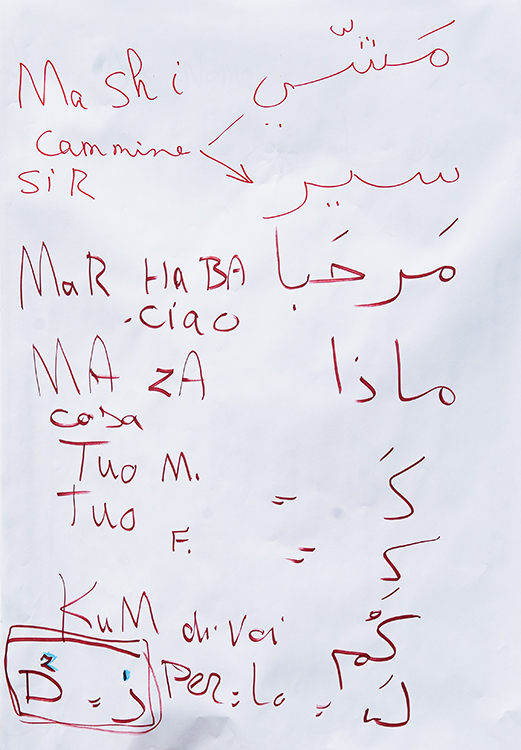 Mashi مَشّي
Cammine
SiR سير
MaR HaBA مَرحَبا
.ciao
MA zA ماذا
cosa
Tuo M. = كَ
Tuo F. = كِ
KuM di voi كُم
D = ذ PER = Lo = لَ